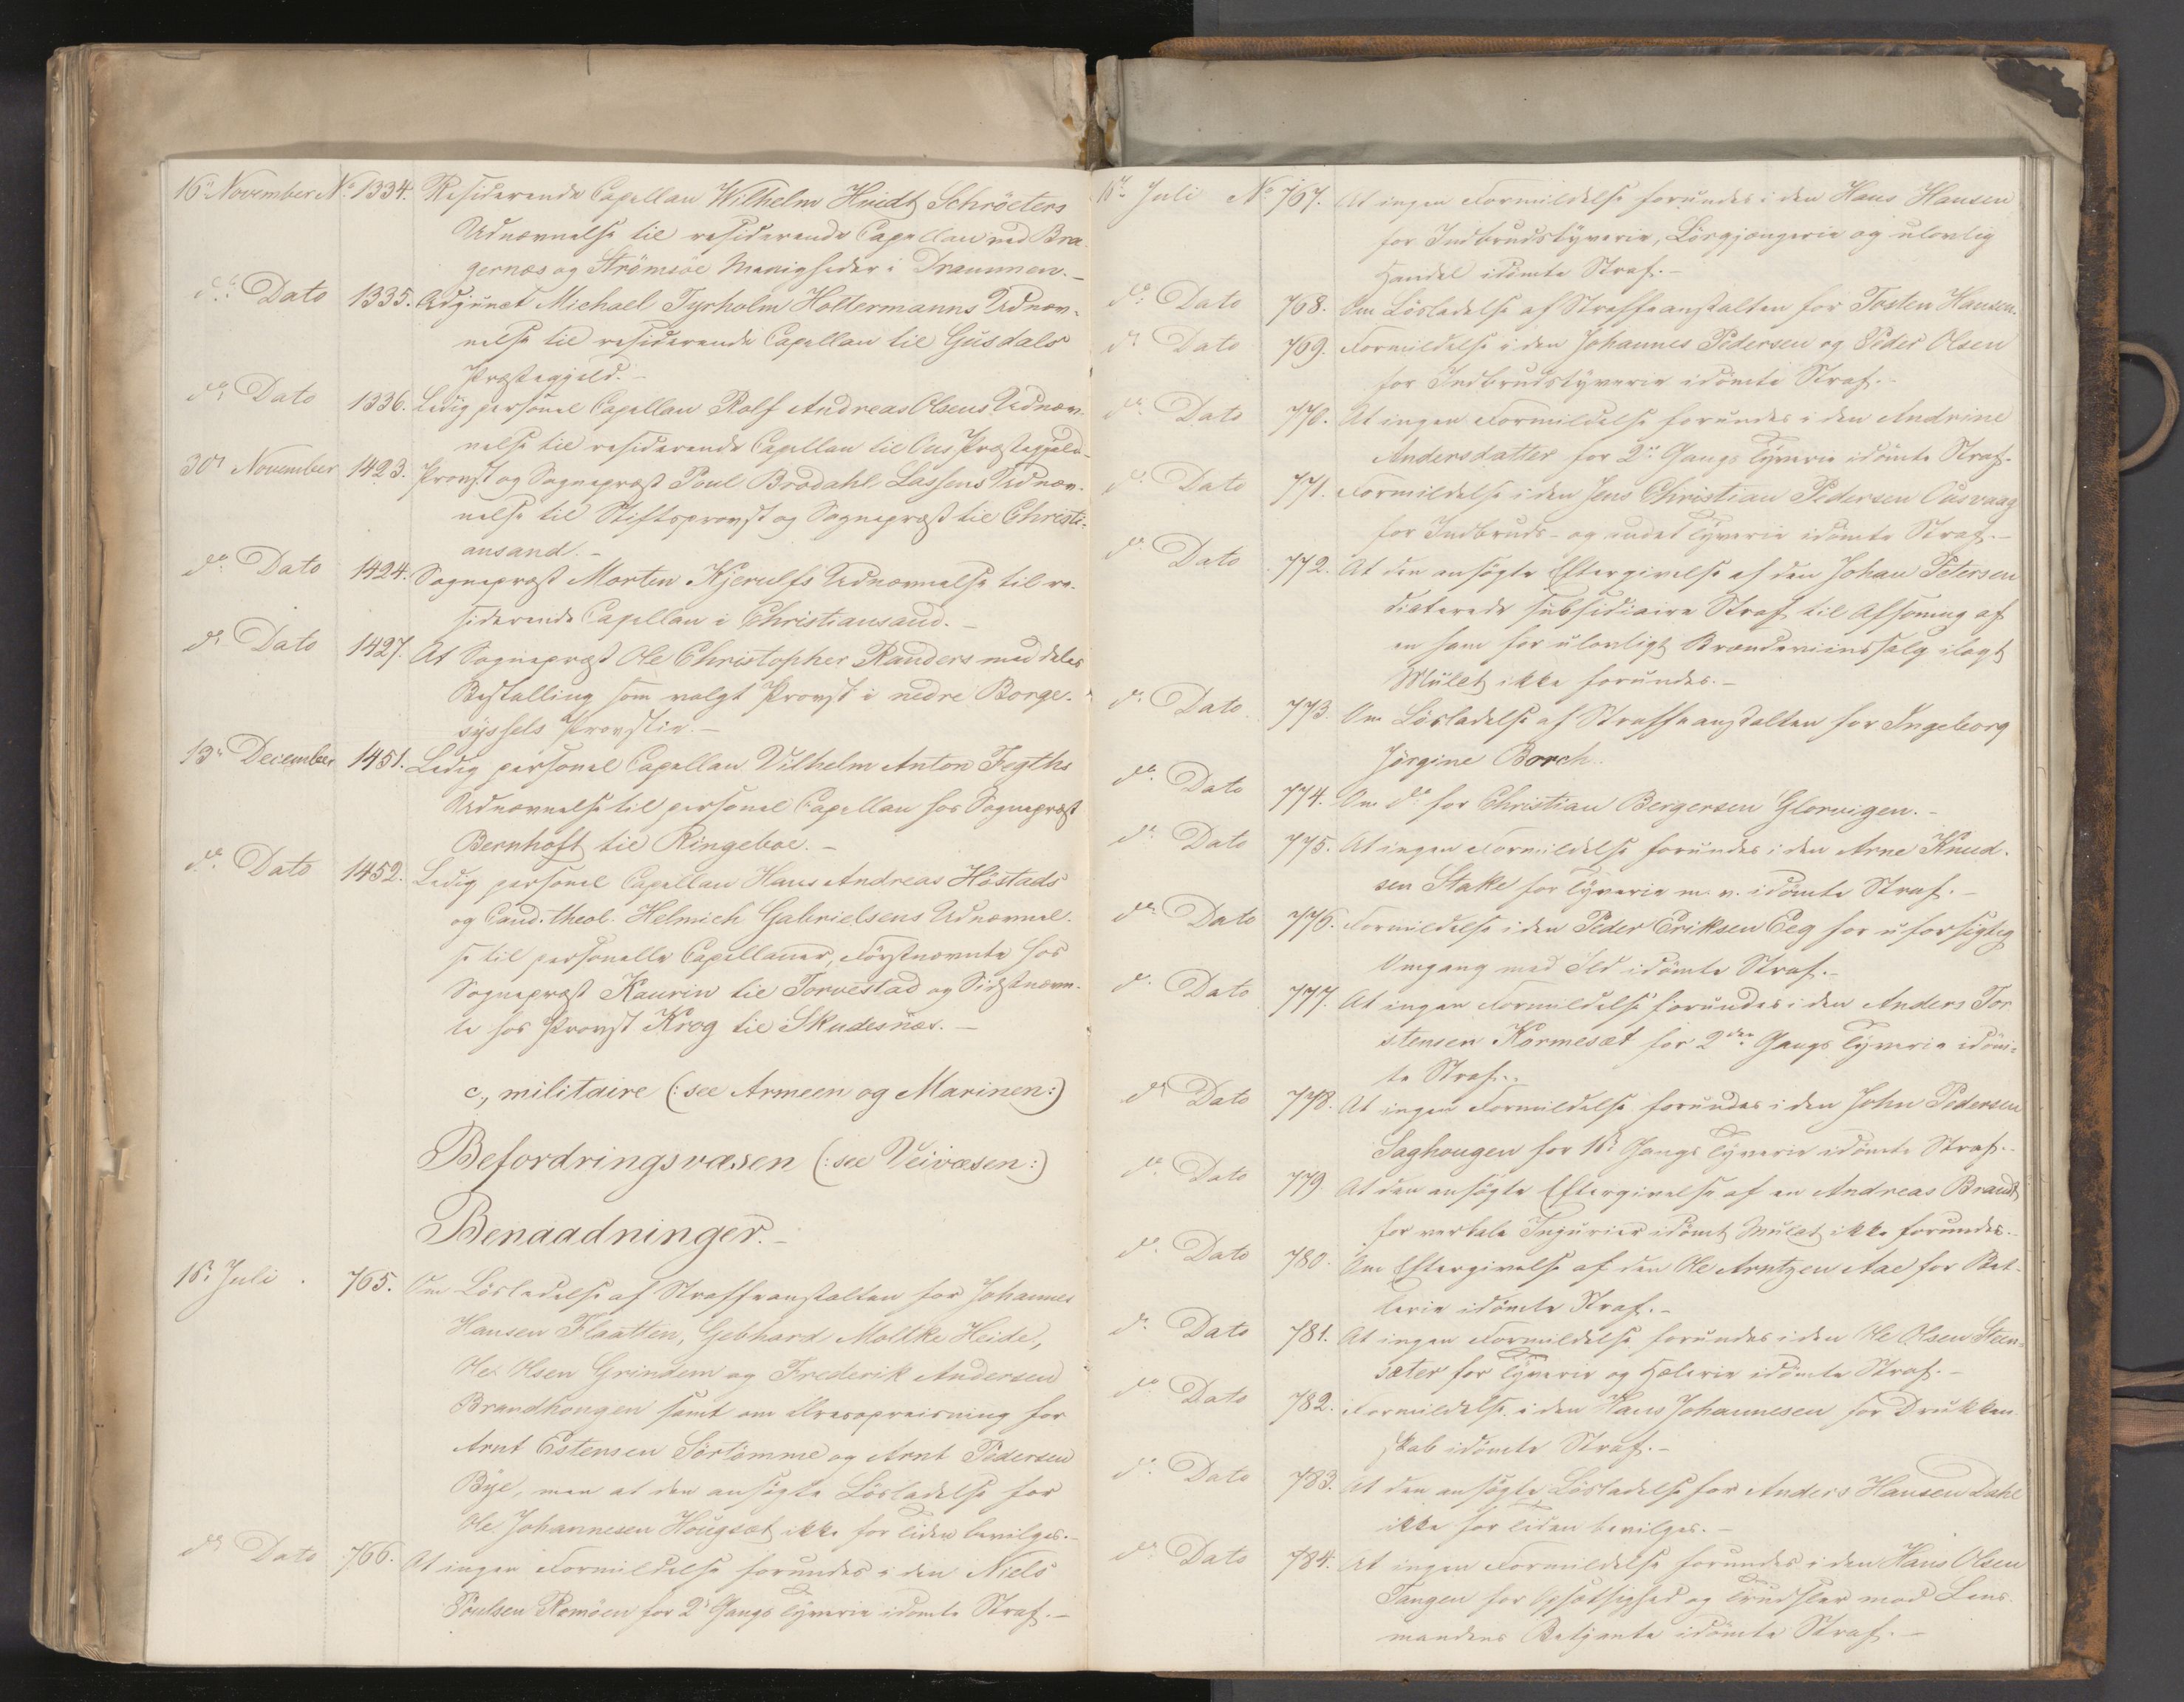 16de November No 1334. Residerende Capellan Wilhelm Hvidt Schröeters
Udnævnelse til residerende Capellan ved Bra-
gernæs og Strömsöe Menigheder i Drammen.-
do Dato 1335. Adjunct Michael Tyrholm Holtermanns Udnæv-
nelse til residerende Capellan til Gusdals
Præstegjeld.-
do Dato 1336. Ledig personel Capellan Rolf Andreas Olsens Udnæv-
nelse til residerende Capellan til Ous Præstegjeld
30te November 1423. Provst og Sognepræst Poul Brodahl Lassens Udnæv-
nelse til Stiftsprovst og Sognepræst til Christi-
ansand.-
do Dato 1424. Sognepræst Morten Kjerulfs Udnævnelse til re-
siderende Capellan i Christiansand.-
do Dato 1427. At Sognepræst Ole Christopher Randers meddeles
Bestalling som valgt Provst i nedre Borge-
syssels Provstie.-
13de December 1451. Ledig personel Capellan Vilhelm Anton Fegths
Udnævnelse til personel Capellan hos Sognepræst
Bernhoft til Ringeboe.-
do Dato 1452. Ledig personel Capellan Hans Andreas Höstads
og Cand. theol. Helmich Gabrielsens Udnævnel-
se til personelle Capellaner, Förstnævnte hos
Sognepræst Kaurin til Torvestad og Sidstnævn-
te hos Provst Krog til Skudesnæs.-
c, militaire (: see Armeen og Marinen:)
Befordringsvæsen (: see Veivæsen:)
Benaadninger.-
1ste Juli. 765. Om Lösladelse af Straffeanstalten for Johannes
Hansen Flaatten, Gebhard Moltke Heide,
Ole Olsen Grindem og Frederik Andersen
Brandhougen samt om Æresopreisning for
Arnt Estensen Sörtömme og Arnt Pedersen
Bye, men at den ansögte Lösladelse for
Ole Johannesen Hougsæt ikke for tiden bevilges.-
do Dato 766. At ingen Formildelse forundes i den Niels
Poulsen Romöen for 2de Gangs Tyverie idömte Straf.-
1ste Juli No 767. At ingen Formildelse forundes i den Hans Hansen
for Indbrudstyverie, Lösgjængerie og ulovlig
Handel idömte Straf.-
do Dato 768. Om Lösladelse af Straffeanstalten for Tosten Hansen.
do Dato 769. Formildelse i den Johannes Pedersen og Peder Olsen
for Indbrudstyverie idömte Straf.-
do Dato 770. At ingen Formildelse forundes i den Andrine
Andersdatter for 2de Gangs Tyverie idömte Straf.-
do Dato 771. Formildelse i den Jens Christian Pedersen Ousvaag
for Indbruds- og andet Tyverie idömte Straf.-
do Dato 772. At den ansögte Eftergivelse af den Johan Petersen
dicterede subsidiaire Straf til Afsoning af
en ham for ulovligt Brændeviinssalg ilagt
Mulct ikke forundes.-
do Dato 773. Om Lösladelse af Straffeanstalten for Ingeborg
Jörgine Borch.
do Dato 774. Om do for Christian Bergersen Glorvigen.-
do Dato 775. At ingen Formildelse forundes i den Arne Knud-
sen Stake for Tyverie m. v. idömte Straf.-
do Dato 776. Formildelse i den Peder Eriksen Eeg for uforsigtig
Omgang med Ild idömte Straf.-
do Dato 777. At ingen Formildelse forundes i den Anders Tor-
stensen Kormesæt for 2den Gangs Tyverie idöm-
te Straf.-
do Dato 778. At ingen Formildelse forundes i den John Pedersen
Saghougen for 1ste Gangs Tyverie idömte Straf.-
do Dato 779 At den ansögte Eftergivelse af en Andreas Brandt
for verbale Injurier idömt Mulct ikke forundes.-
do Dato 780. Om Eftergivelse af den Ole Arntzen Aae for Bet-
lerie idömte Straf.-
do Dato 781. At ingen Formildelse forundes i den Ole Olsen Steen-
sæter for Tyverie og Hælerie idömte Straf.-
do Dato 782. Formildelse i den Hans Johannesen for Drukken-
skab idömte Straf.-
do Dato 783. At den ansögte Lösladelse for Anders Hansen Dahl
ikke for tiden bevilges.-
do Dato 784. At ingen Formildelse forundes i den Hans Olsen
Tangen for Opsætsighed og Trudsler mod Lens-
mandens Betjente idömte Straf.-